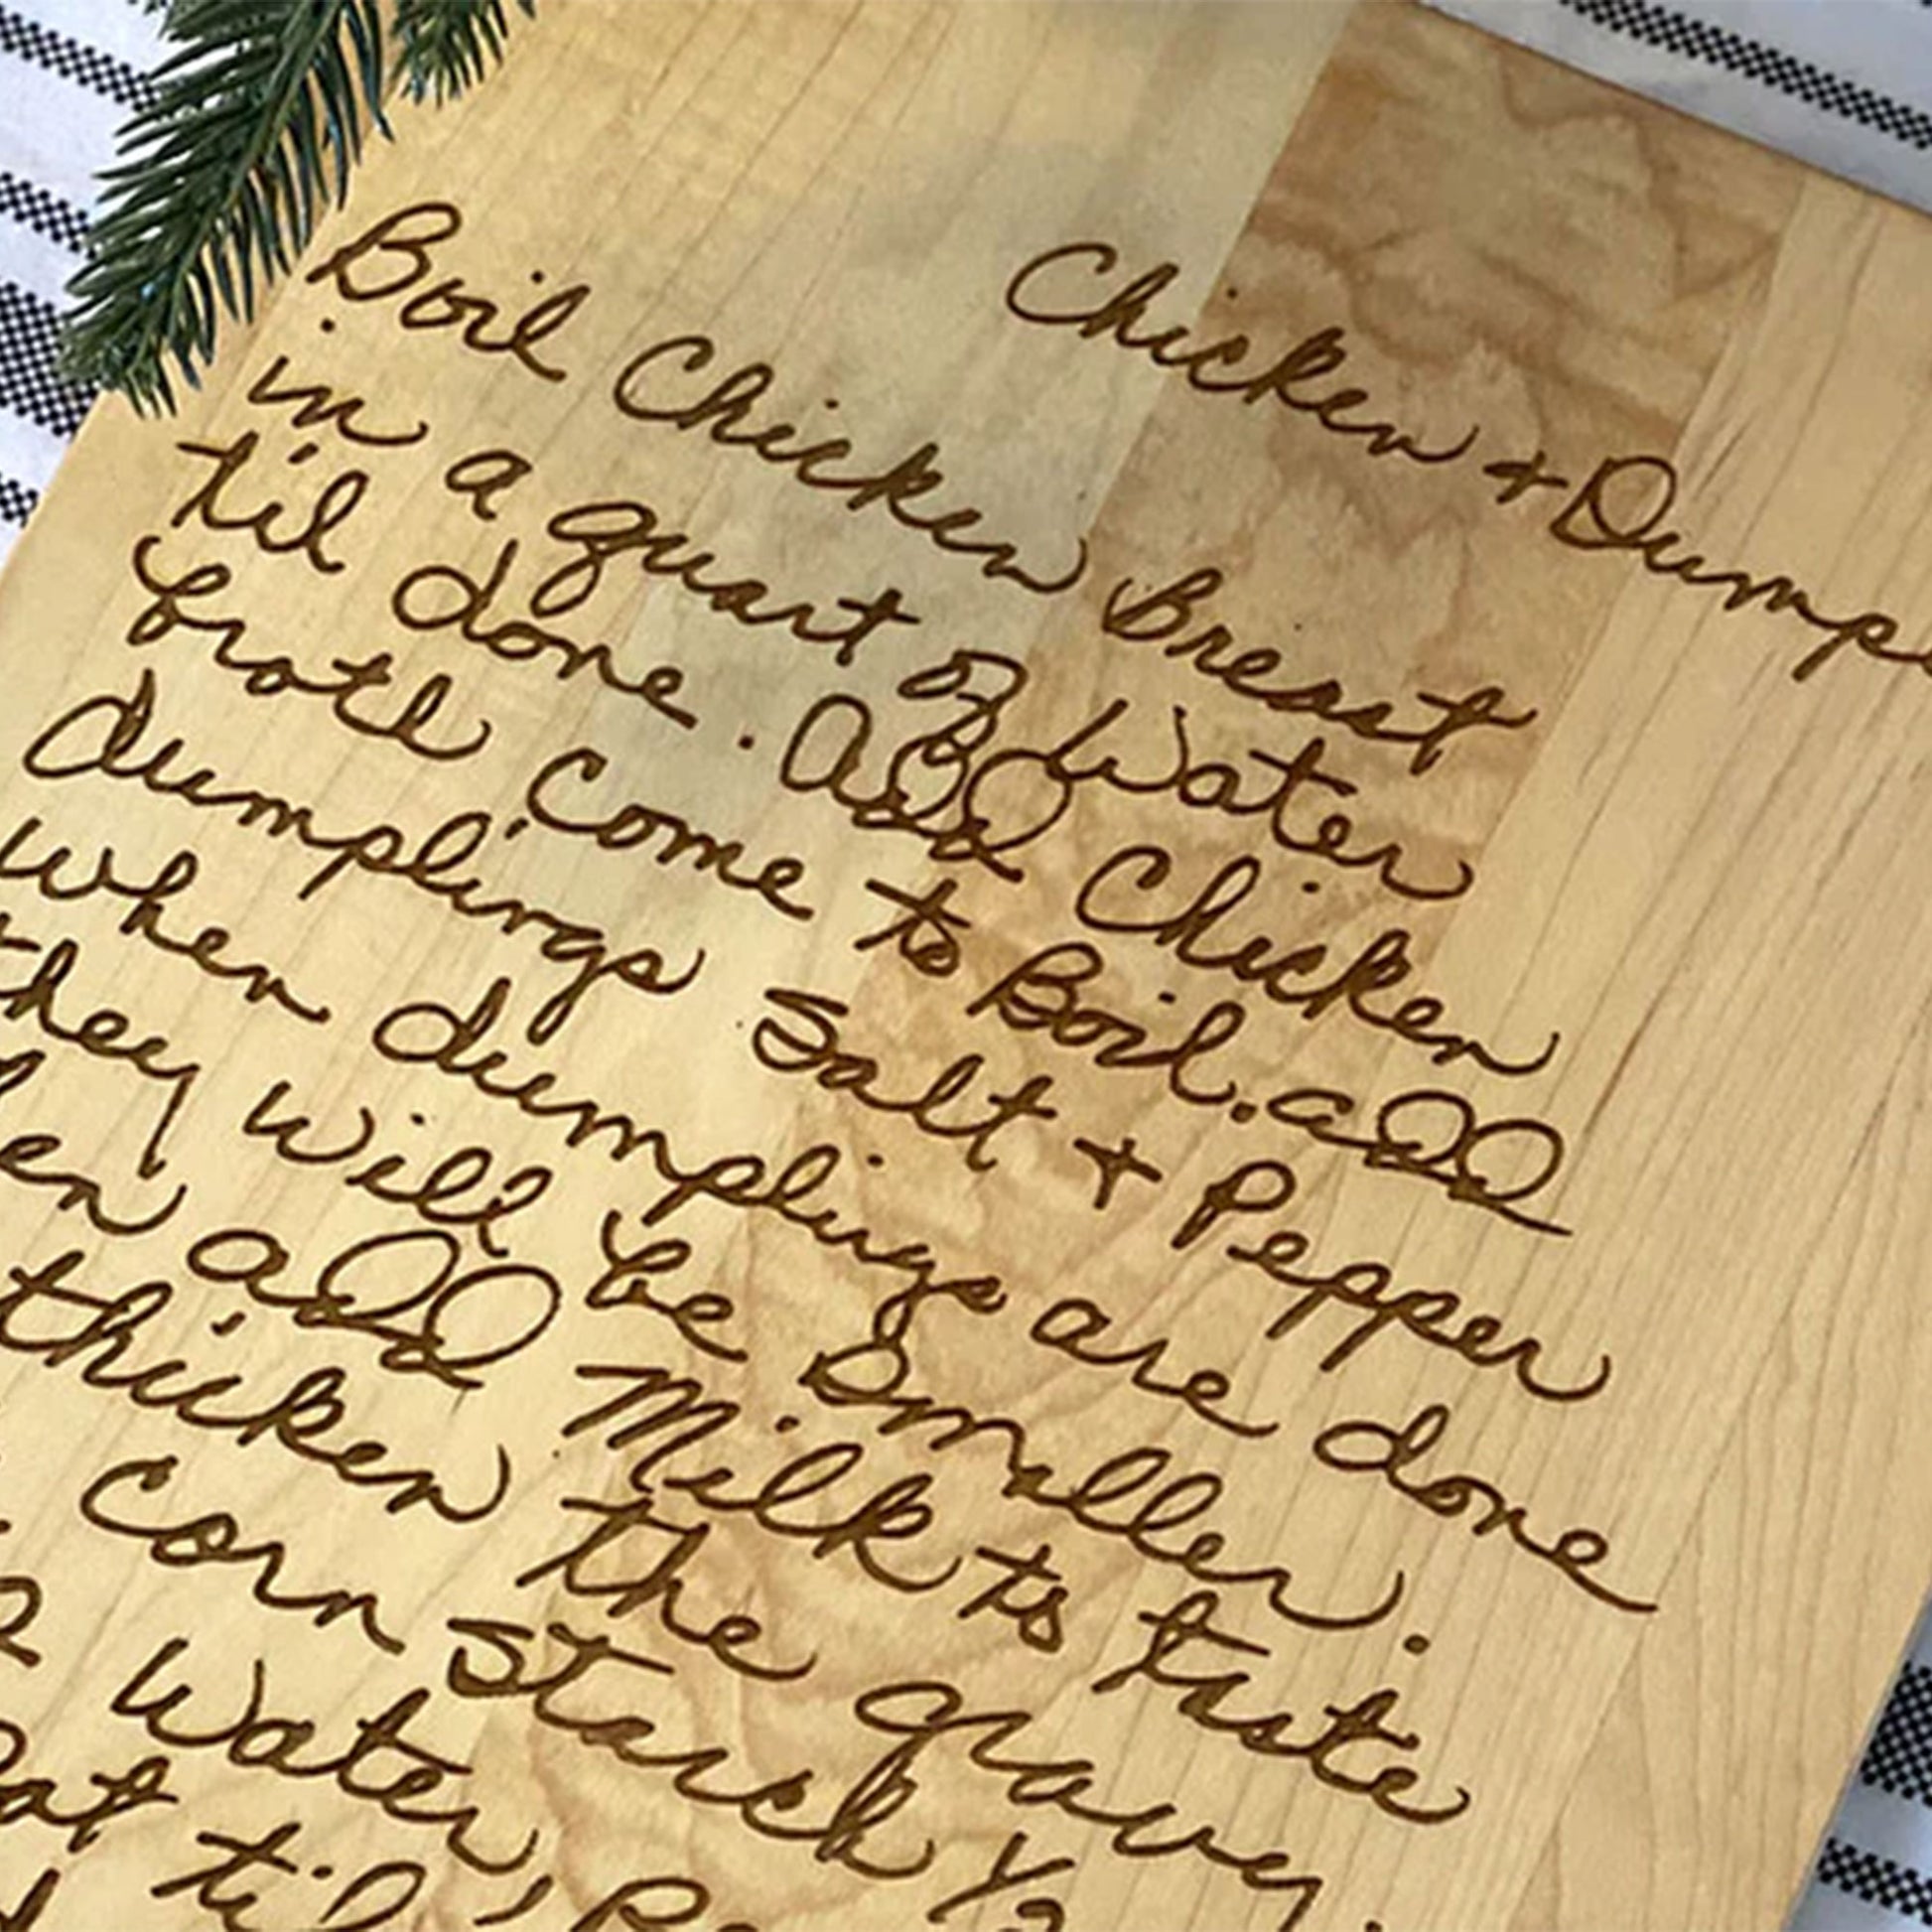 Chicken + Dump
Boil Chicken Breast
in a quart of Water
til done. Add Chicken
broth come to Boil. add
dumplings Salt + Pepper
When dumplings are done
they will be Smaller.
en add Milk to taste
thicken the gravy.
corn starch 1/2
Water,
at til